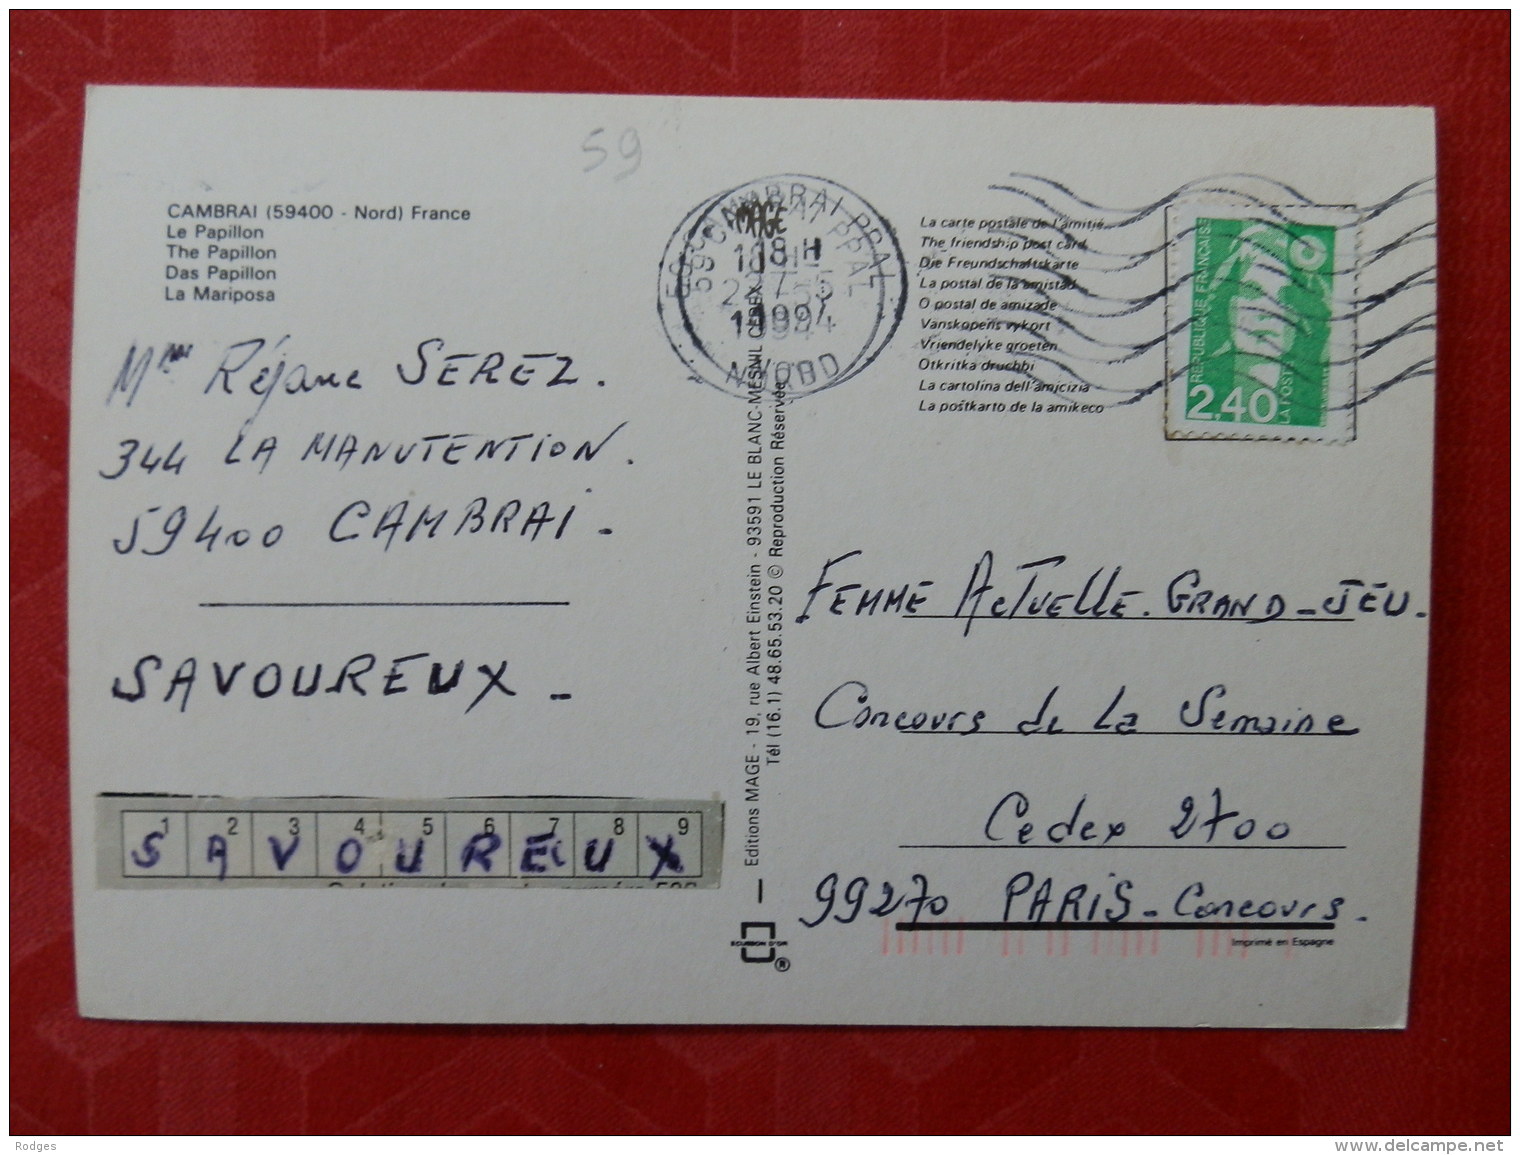 59
CAMBRAI (59400 - Nord) France
Le Papillon
The Papillon
Das Papillon
La Mariposa
Mme Réjane SEREZ.
344 LA MANUTENTION.
59400 CAMBRAI -
SAVOUREUX -
1 2 3 4 5 6 7 8 9
S A V O U R E U X
59 CAMBRAI PPAL
MAGE
18 H
NORD
Editions MAGE - 19, rue Albert Einstein - 93591 LE BLANC-MESNIL CEDEX
Tél (16.1) 48.65.53.20 © Reproduction Réservée
ECUSSON D'OR
®
La carte postale de l'amitié
The friendship post card
Die Freundschaftskarte
La postal de la amistad
O postal de amizade
Vanskopens vykort
Vriendelyke groeten
Otkritka druchbi
La cartolina dell'amicizia
La poŝtkarto de la amikeco
REPUBLIQUE FRANÇAISE
2,40
LA POSTE
FEMME ACTUELLE. GRAND-JEU.
Concours de La Semaine
Cedex 2700
99270 PARIS - Concours.
Imprimé en Espagne
Rodges
www.delcampe.net